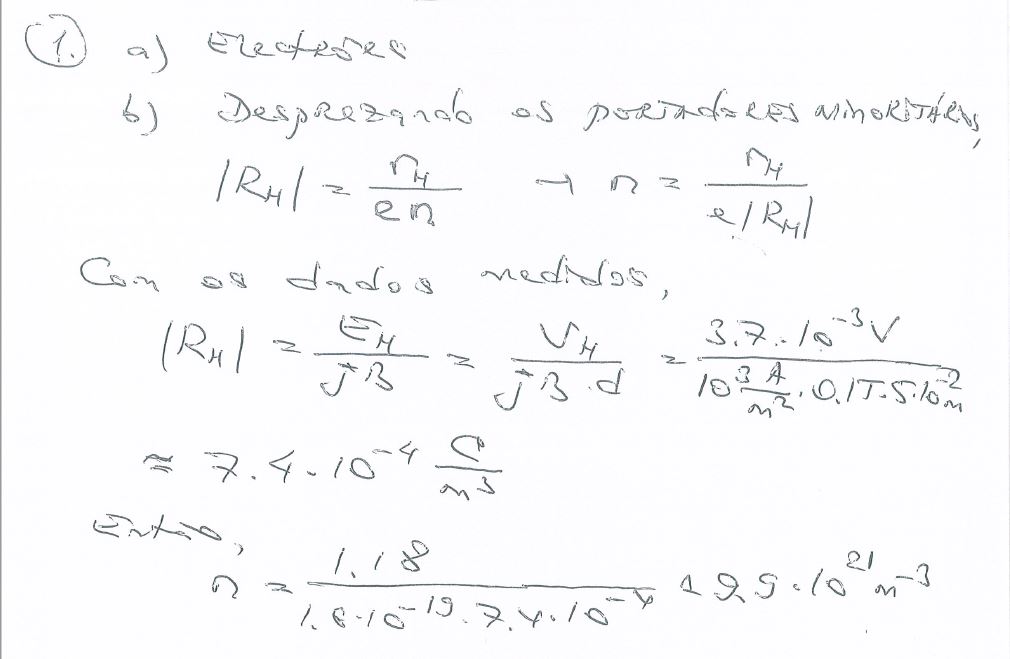 1. a) Electrões
b) Desprezando os portadores minoritários,
|R_H| = r_H / (e n) → n = r_H / (e |R_H|)
Com os dados medidos,
|R_H| = E_H / (j B) = V_H / (j B · d) = 3.7 · 10^-3 V / (10^3 A/m^2 · 0.1T · 5 · 10^-2 m)
≈ 7.4 · 10^-4 C/m^3
Então,
n = 1.18 / (1.6 · 10^-19 · 7.4 · 10^-4) ≈ 9.9 · 10^21 m^-3